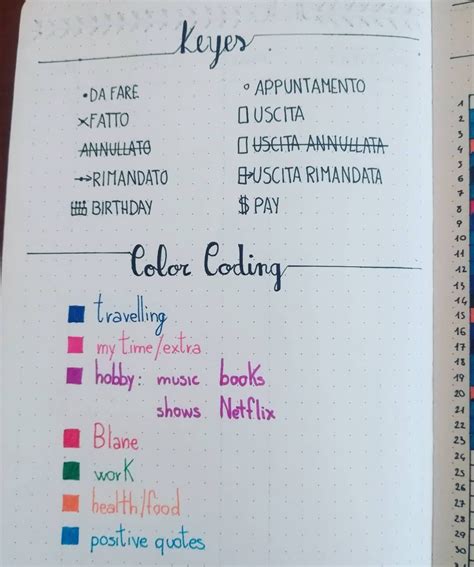 Keyes
•DA FARE
×FATTO
ANNULLATO
→RIMANDATO
BIRTHDAY
° APPUNTAMENTO
USCITA
USCITA ANNULLATA
USCITA RIMANDATA
$ PAY
Color Coding
travelling
my time/extra
hobby: music books
shows Netflix
Blane
work
health/food
positive quotes
1
2
3
4
5
6
7
8
9
10
11
12
13
14
15
16
17
18
19
20
21
22
23
24
25
26
27
28
29
30